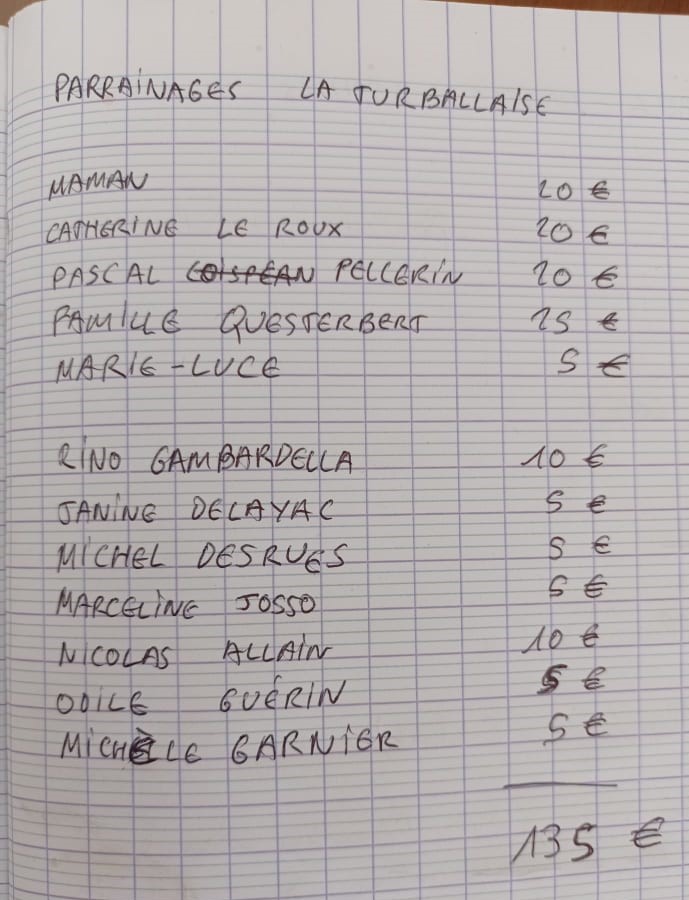 PARRAINAGES LA TURBALLAISE
MAMAN 20 €
CATHERINE LE ROUX 20 €
PASCAL PELLERIN 20 €
FAMILLE QUESTERBERT 25 €
MARIE-LUCE 5 €
RINO GAMBARDELLA 10 €
JANINE DELAYAC 5 €
MICHEL DESRUES 5 €
MARCELINE JOSSO 5 €
NICOLAS ALLAIN 10 €
ODILE GUÉRIN 5 €
MICHÈLE GARNIER 5 €
135 €